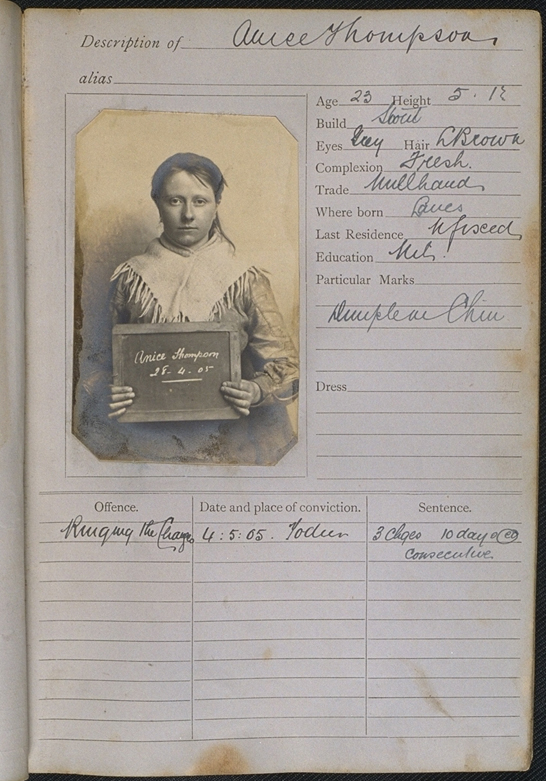 Description of Anice Thompson
alias
Age 23 Height 5. 1½
Build Stout
Eyes Grey Hair LBrown
Complexion Fresh.
Trade Millhand
Where born
Last Residence N fixed
Education
Particular Marks
Dimple on Chin
Anice Thompson
28-4-05
Dress
Offence. Date and place of conviction. Sentence.
Ringing the Changes 4:5:05. 3 Chges 10 days ea
Consecutive